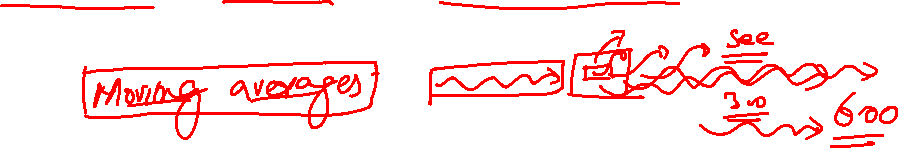 Moving averages
see
300
600